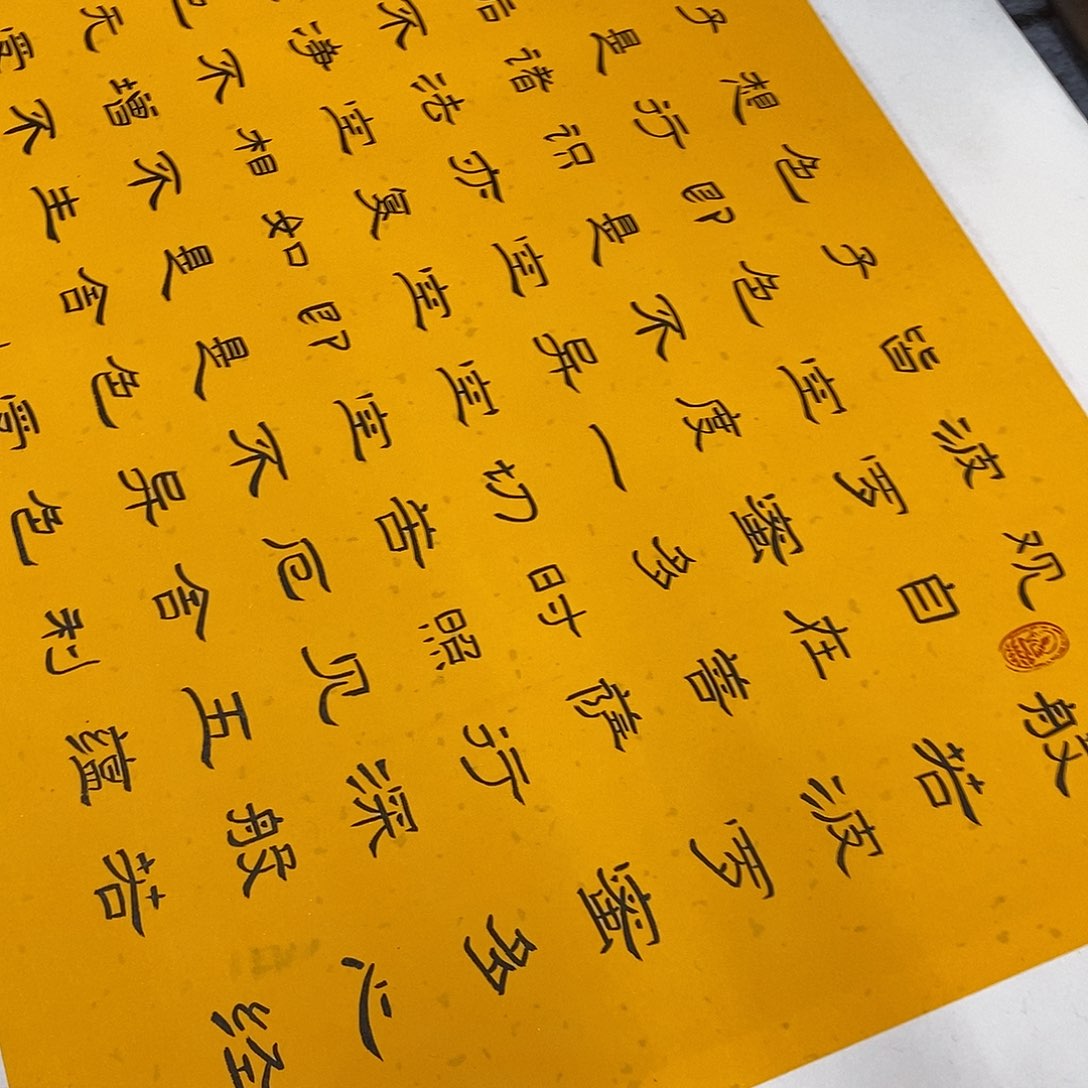 般若波罗蜜多心经
观自在菩萨行深般若
波罗蜜多时照见五蕴
皆空度一切苦厄舍利
子色不异空空不异色
色即是空空即是色受
想行识亦复如是舍
子是诸法空相不生
垢不净不增不
无受